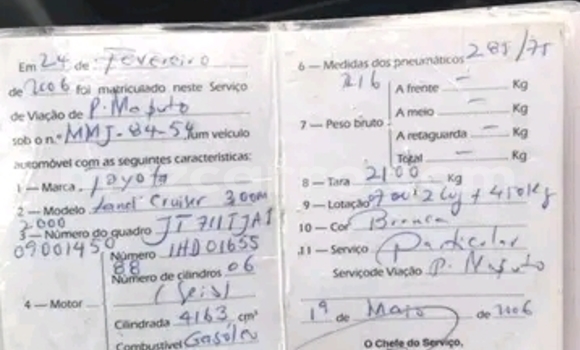 Em 24 de Fevereiro
de 2006 foi matriculado neste Serviço
de Viação de P. Maputo
sob o n.º MMJ-84-54, um veículo
automóvel com as seguintes características:
1 — Marca Toyota
2 — Modelo Land Cruiser 300M
2000
3 — Número do quadro JT711TJA1
09001450
Número 1HD01655
88
Número de cilindros 06
(Seis)
4 — Motor
Cilindrada 4163 cm³
Combustível Gasóleo
6 — Medidas dos pneumáticos 285/75
216
7 — Peso bruto
A frente — Kg
A meio — Kg
A retaguarda — Kg
Total — Kg
8 — Tara 2100 Kg
9 — Lotação
10 — Cor Branca
11 — Serviço Particular
Serviço de Viação P. Maputo
1º de Maio de 2006
O Chefe do Serviço,